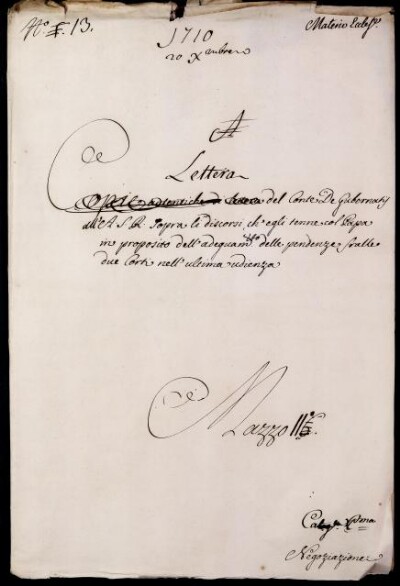 N.º 13.
Materie Eccles.e
1710
20 Xmbre
A
Lettera
Copie autentiche di lettera del Conte De Gubernatis
all'A. S. R. Sopra li discorsi, ch'egli tenne col Papa
in proposito dell'adequam.to delle pendenze fralle
due Corti nell'ultima udienza
Mazzo 11.º
Categ.a p.ma
Negoziazione